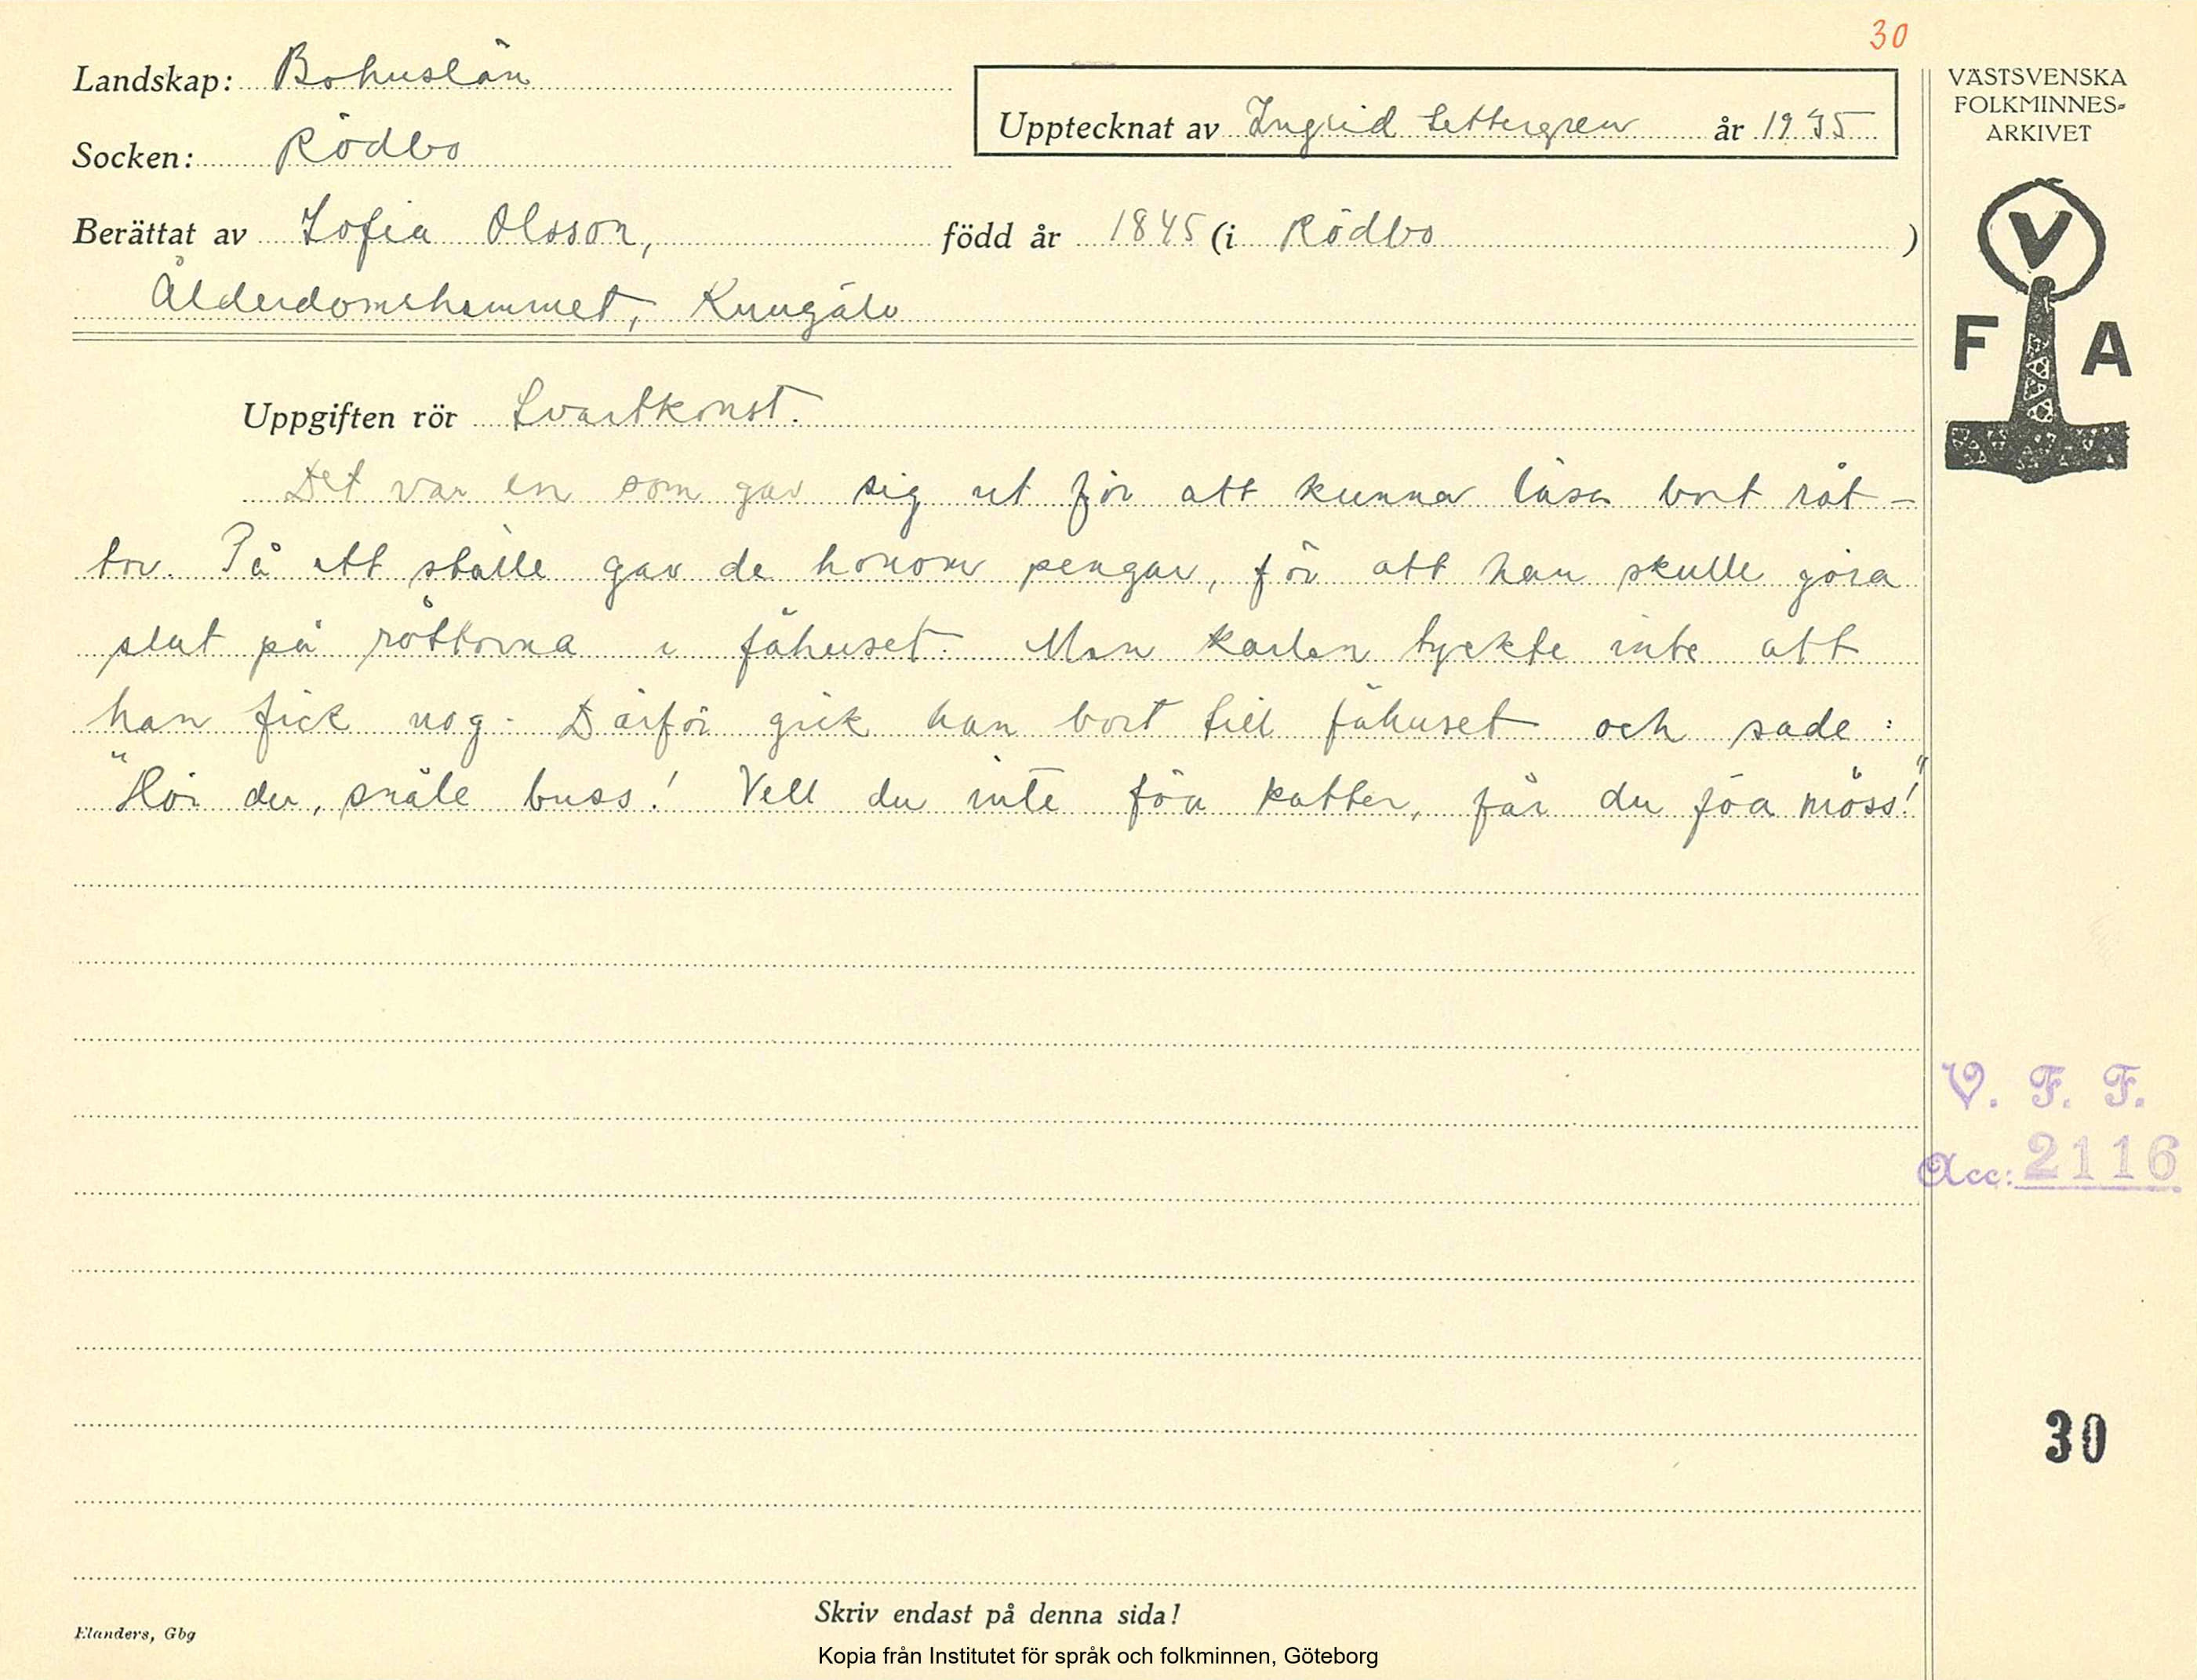 30
Landskap: Bohuslän
Socken: Rödbo
Upptecknat av Ingrid Settergren år 1935
Berättat av Sofia Olsson, född år 1845 (i Rödbo )
Ålderdomshemmet, Kungälv
VÄSTSVENSKA
FOLKMINNES-
ARKIVET
V
F A
Uppgiften rör Svartkonst.
Det var en som gav sig ut för att kunna läsa bort råt-
tor. På ett ställe gav de honom pengar, för att han skulle göra
slut på råttorna i fähuset. Men karlen tyckte inte att
han fick nog. Därför gick han bort till fähuset och sade:
"Hör du, snåle buss! Vell du inte föa katter, får du föa möss!"
V. F. F.
Acc: 2116
30
Skriv endast på denna sida!
Elanders, Gbg
Kopia från Institutet för språk och folkminnen, Göteborg